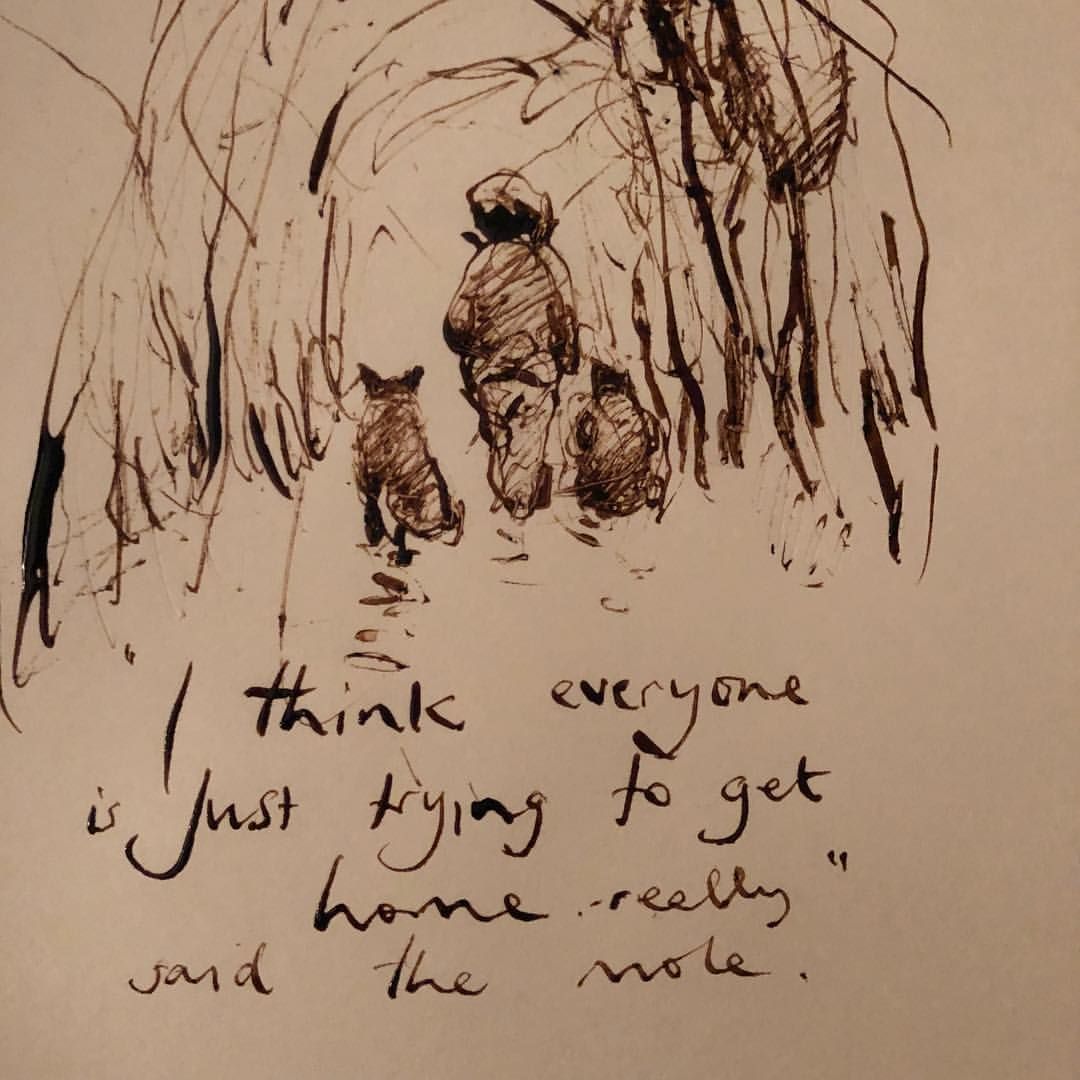 "I think everyone
is just trying to get
home really"
said the mole.